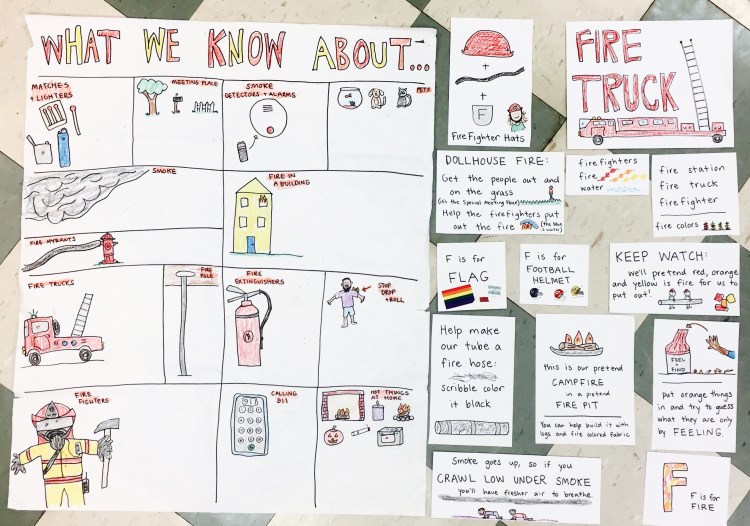 WHAT WE KNOW ABOUT...
MATCHES
+ LIGHTERS
MEETING PLACE
SMOKE
DETECTORS + ALARMS
OR
PETS
SMOKE
FIRE IN
A BUILDING
FIRE HYRANTS
FIRE TRUCKS
FIRE
POLE
FIRE
EXTINGUISHERS
STOP
DROP
+ROLL
FIRE
FIGHTERS
CALLING
911
911
HOT THINGS
AT HOME
+
+
F
Fire Fighter Hats
FIRE
TRUCK
DOLLHOUSE FIRE:
Get the people out and
on the grass
(it's the Special Meeting Place)
Help the firefighters put
out the fire (the blue
is water)
firefighters
fire
water
fire station
fire truck
firefighter
fire colors
F is for
FLAG
F is for
FOOTBALL
HELMET
KEEP WATCH:
we'll pretend red, orange
and yellow is fire for us to
put out!
Help make
our tube a
fire hose:
scribble color
it black
this is our pretend
CAMPFIRE
in a pretend
FIRE PIT
You can help build it with
logs and fire colored fabric
FEEL
+
FIND
put orange things
in and try to guess
what they are only
by FEELING.
Smoke goes up, so if you
CRAWL LOW UNDER SMOKE
you'll have fresher air to breathe
F
F is for
FIRE